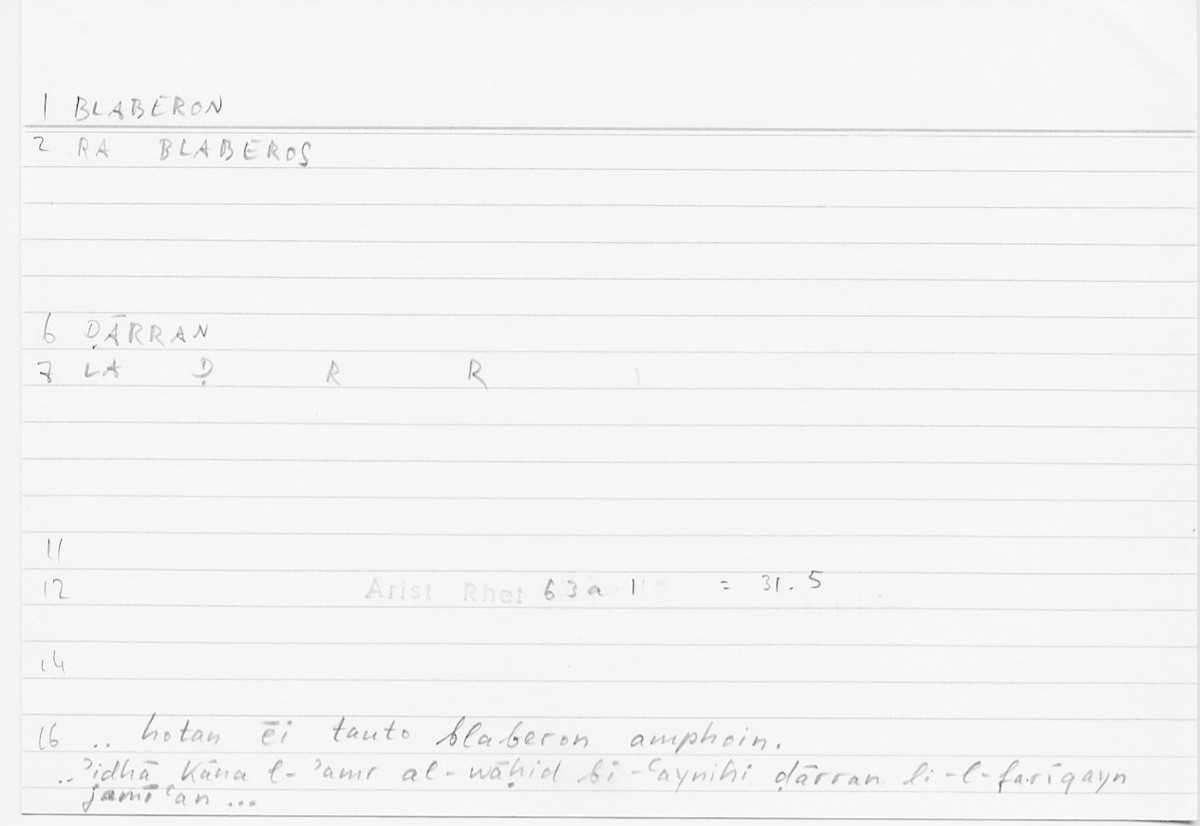 1 BLABERON
2 RA BLABEROS
6 ḌĀRRAN
7 LA Ḍ R R
11
12 Arist Rhet 63a 1 = 31.5
14
16 .. hotan ēi tauto blaberon amphoin.
..ʾidhā kāna l-ʾamr al-wāḥid bi-ʿaynihi ḍārran li-l-farīqayn
jamīʿan ...